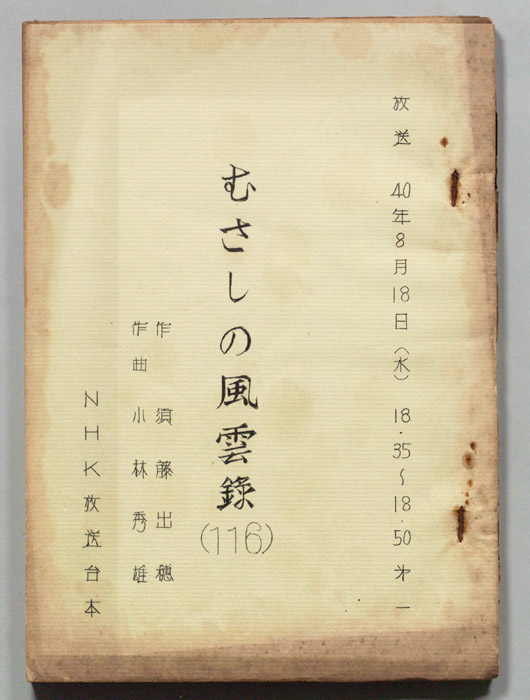 放送 40年8月18日(水) 18.35~18.50 第一
むさしの風雲録
(116)
作 須藤出穂
作曲 小林秀雄
NHK放送台本